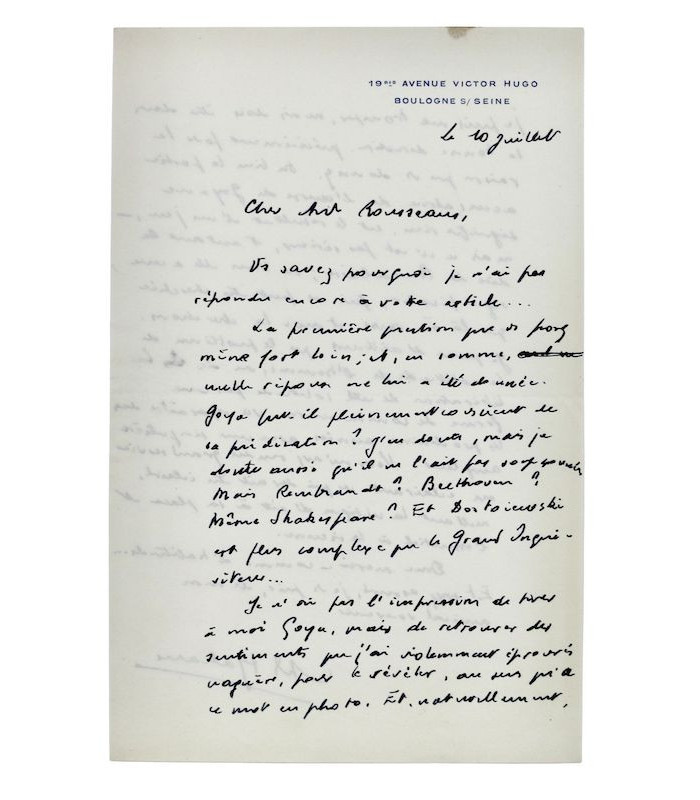 19BIS AVENUE VICTOR HUGO
BOULOGNE S/ SEINE
le 10 juillet
Cher André Rousseaux,
Vs savez pourquoi je n'ai pas
répondu encore à votre article...
La première question que vs posez
mène fort loin ; et, en somme,
nulle réponse ne lui a été donnée.
Goya fut-il pleinement conscient de
sa prédication ? J'en doute, mais je
doute aussi qu'il ne l'ait pas soupçonnée
Mais Rembrandt ? Beethoven ?
Même Shakespeare ? Et Dostoïewski
est plus complexe que le Grand Inqui-
siteur...
Je n'ai pas l'impression de tirer
à moi Goya, mais de retrouver des
sentiments que j'ai violemment éprouvés
naguère, pour le révéler, au sens qu'a
ce mot en photo. Et, naturellement,